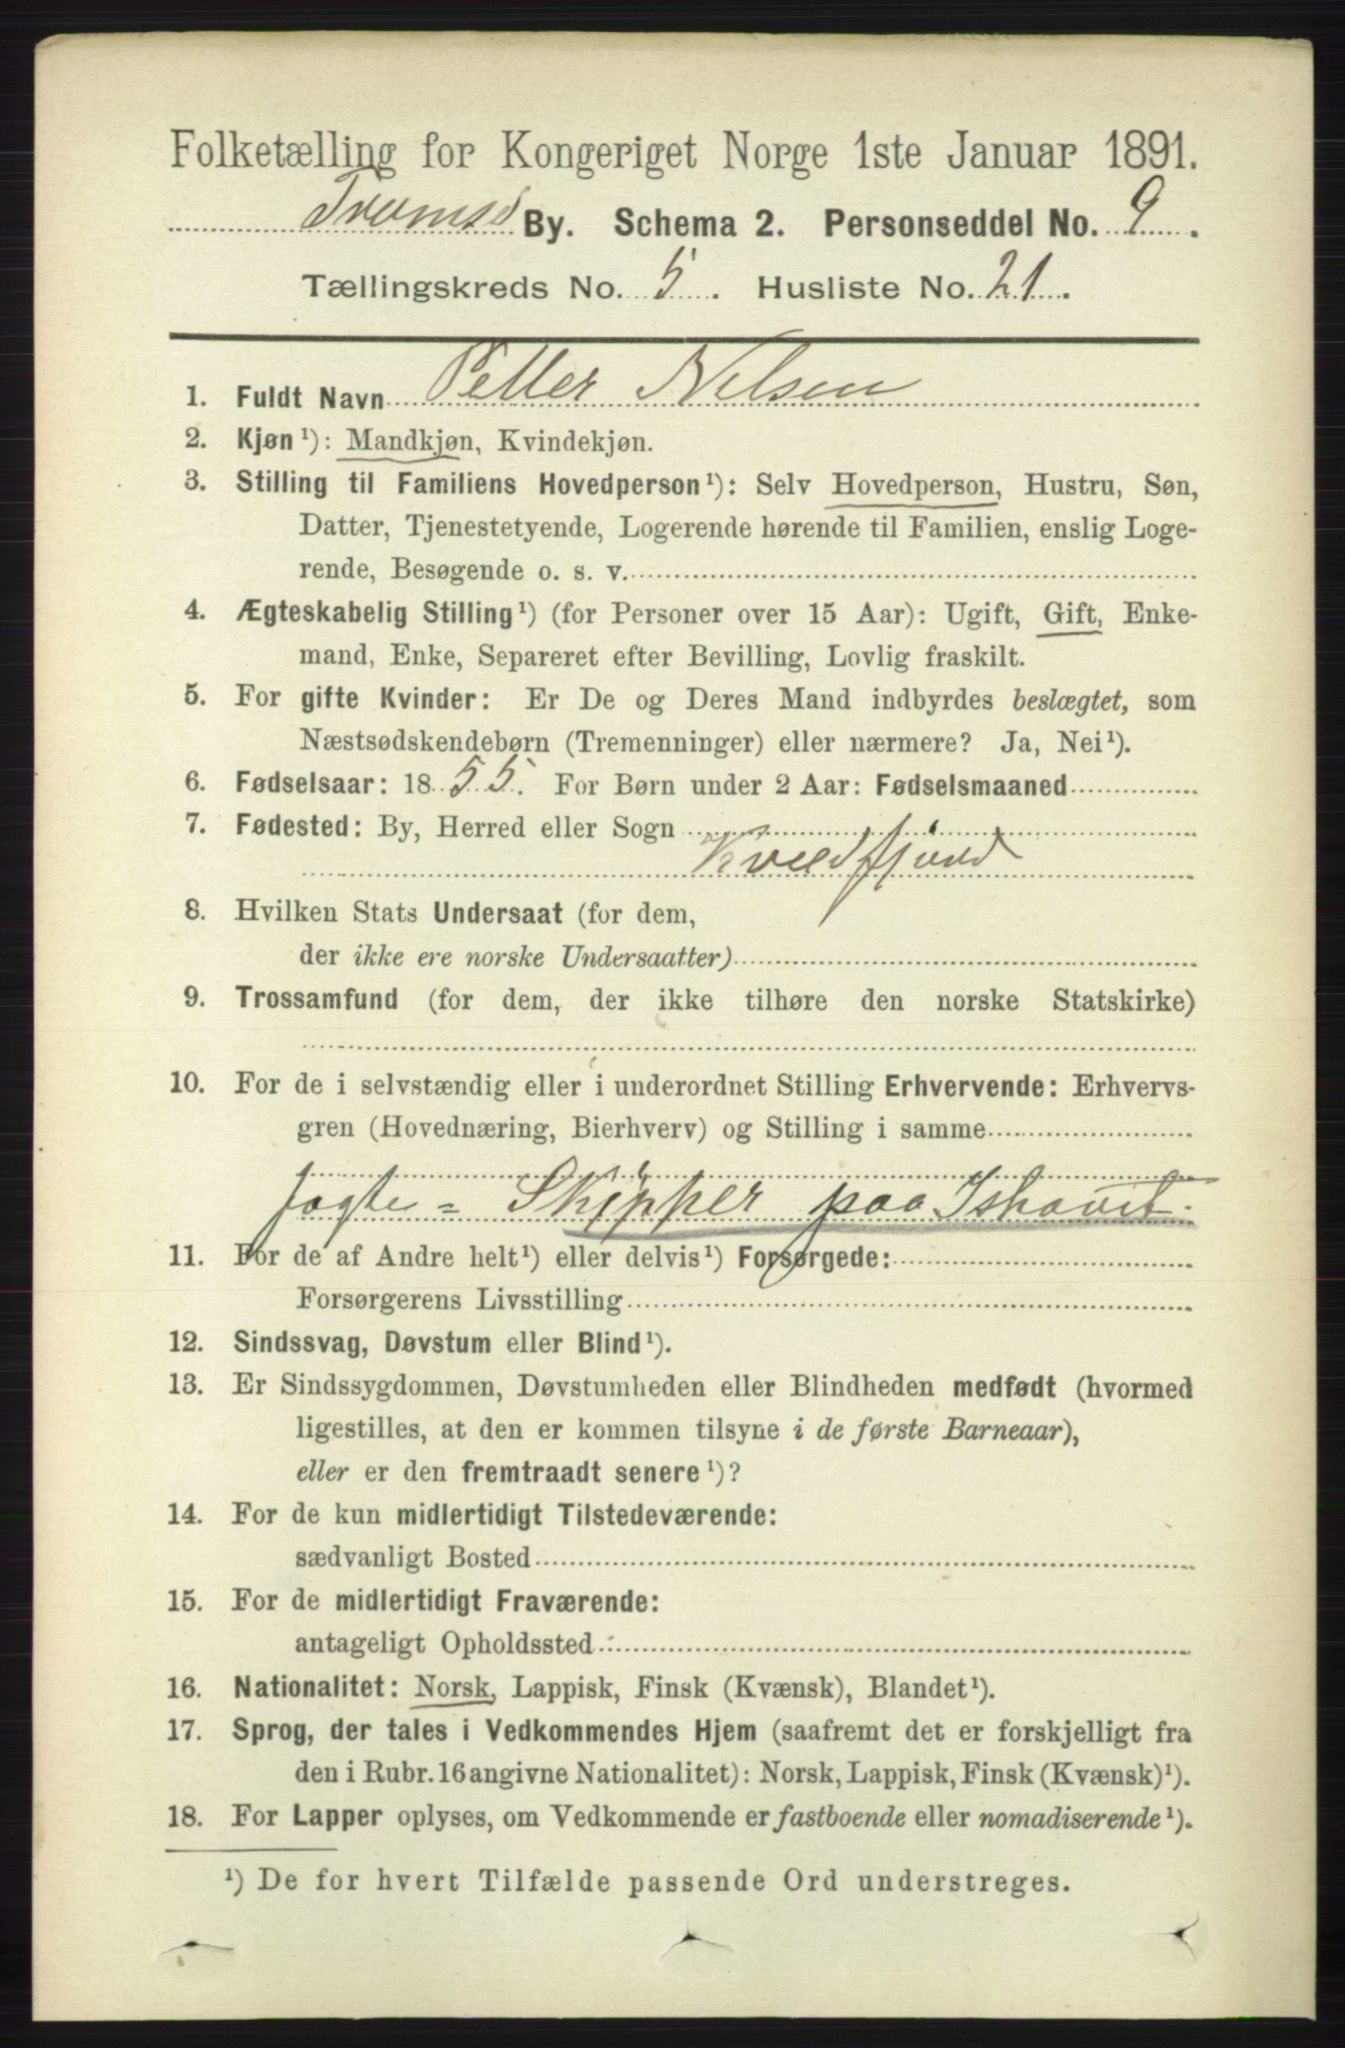 Folketælling for Kongeriget Norge 1ste Januar 1891.
Tromsø By. Schema 2. Personseddel No. 9.
Tællingskreds No. 5. Husliste No. 21.
1. Fuldt Navn Petter Nelsen
2. Kjøn¹): Mandkjøn, Kvindekjøn.
3. Stilling til Familiens Hovedperson¹): Selv Hovedperson, Hustru, Søn,
Datter, Tjenestetyende, Logerende hørende til Familien, enslig Loge-
rende, Besøgende o. s. v.
4. Ægteskabelig Stilling¹) (for Personer over 15 Aar): Ugift, Gift, Enke-
mand, Enke, Separeret efter Bevilling, Lovlig fraskilt.
5. For gifte Kvinder: Er De og Deres Mand indbyrdes beslægtet, som
Næstsødskendebørn (Tremenninger) eller nærmere? Ja, Nei¹).
6. Fødselsaar: 1855. For Børn under 2 Aar: Fødselsmaaned
7. Fødested: By, Herred eller Sogn
Kvedfjord
8. Hvilken Stats Undersaat (for dem,
der ikke ere norske Undersaatter)
9. Trossamfund (for dem, der ikke tilhøre den norske Statskirke)
10. For de i selvstændig eller i underordnet Stilling Erhvervende: Erhvervs-
gren (Hovednæring, Bierhverv) og Stilling i samme
Jagte = Skipper paa Ishavet.
11. For de af Andre helt¹) eller delvis¹) Forsørgede:
Forsørgerens Livsstilling
12. Sindssvag, Døvstum eller Blind¹).
13. Er Sindssygdommen, Døvstumheden eller Blindheden medfødt (hvormed
ligestilles, at den er kommen tilsyne i de første Barneaar),
eller er den fremtraadt senere¹)?
14. For de kun midlertidigt Tilstedeværende:
sædvanligt Bosted
15. For de midlertidigt Fraværende:
antageligt Opholdssted
16. Nationalitet: Norsk, Lappisk, Finsk (Kvænsk), Blandet¹).
17. Sprog, der tales i Vedkommendes Hjem (saafremt det er forskjelligt fra
den i Rubr. 16 angivne Nationalitet): Norsk, Lappisk, Finsk (Kvænsk)¹).
18. For Lapper oplyses, om Vedkommende er fastboende eller nomadiserende¹).
¹) De for hvert Tilfælde passende Ord understreges.